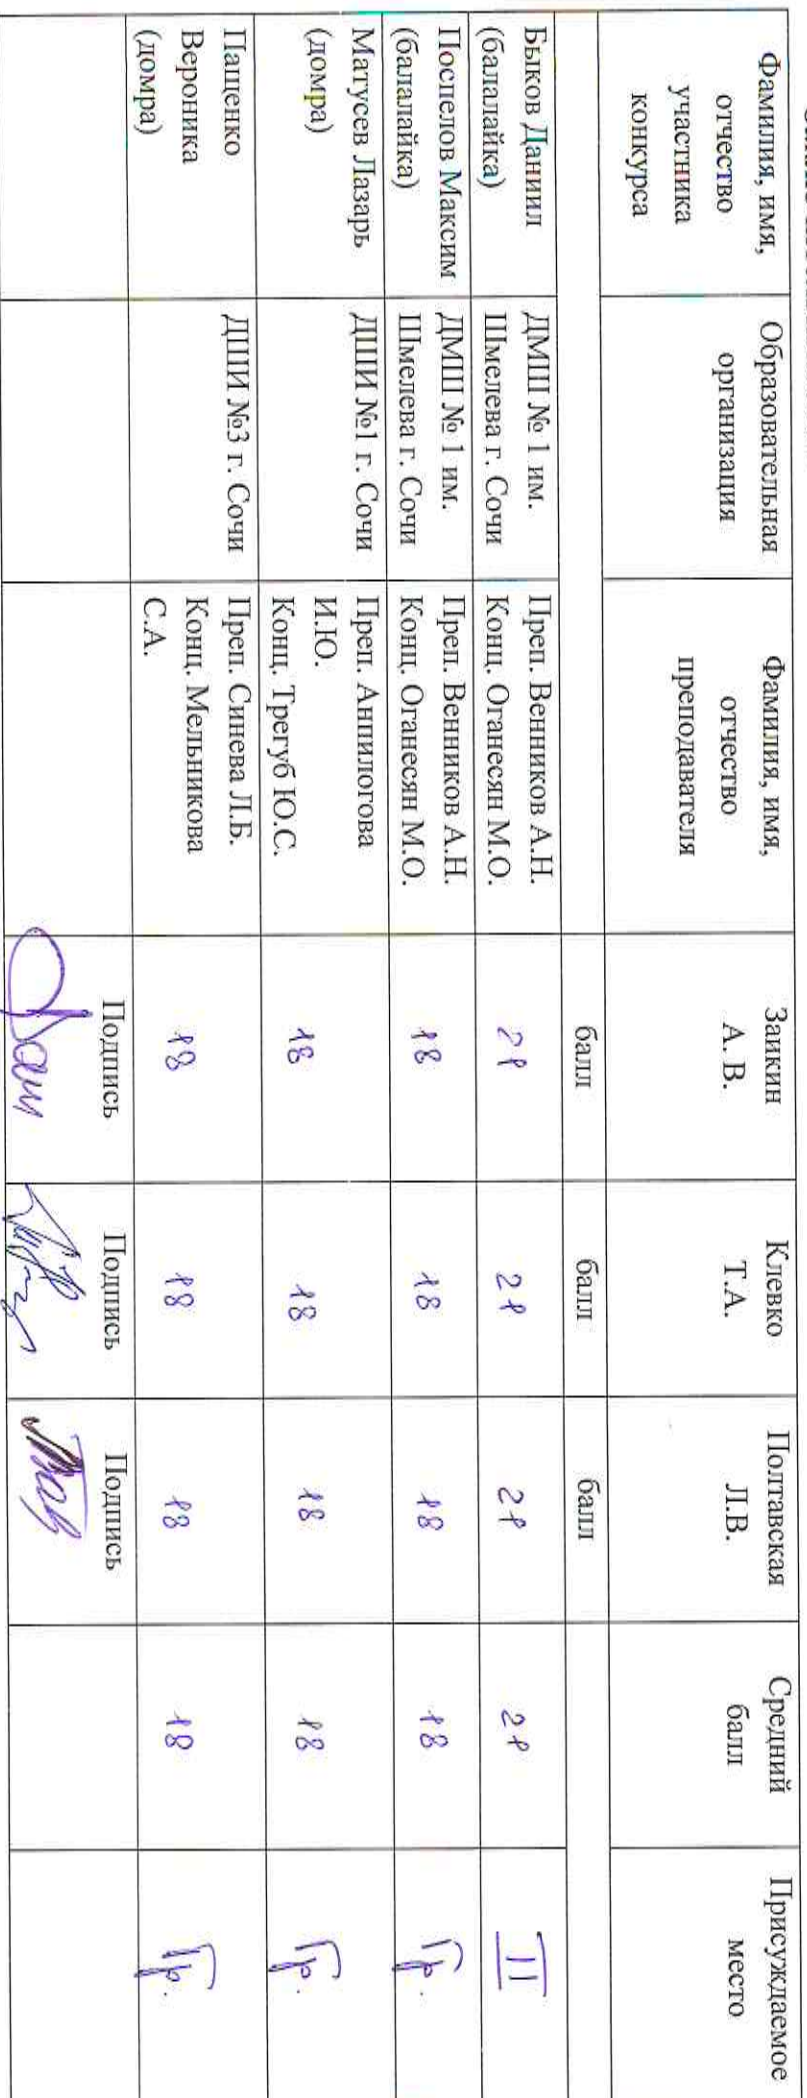 Фамилия, имя,
отчество
участника
конкурса
Образовательная
организация
Фамилия, имя,
отчество
преподавателя
Заикин
А. В.
Клевко
Т.А.
Полтавская
Л.В.
Средний
балл
Присуждаемое
место
балл
балл
балл
Быков Даниил
(балалайка)
ДМШ № 1 им.
Шмелева г. Сочи
Преп. Венников А.Н.
Конц. Оганесян М.О.
21
21
21
21
II
Поспелов Максим
(балалайка)
ДМШ № 1 им.
Шмелева г. Сочи
Преп. Венников А.Н.
Конц. Оганесян М.О.
18
18
18
18
Гр.
Матусев Лазарь
(домра)
ДШИ №1 г. Сочи
Преп. Анпилогова
И.Ю.
Конц. Трегуб Ю.С.
18
18
18
18
Гр.
Пащенко
Вероника
(домра)
ДШИ №3 г. Сочи
Преп. Синева Л.Б.
Конц. Мельникова
С.А.
18
18
18
18
Гр.
Подпись
Подпись
Подпись